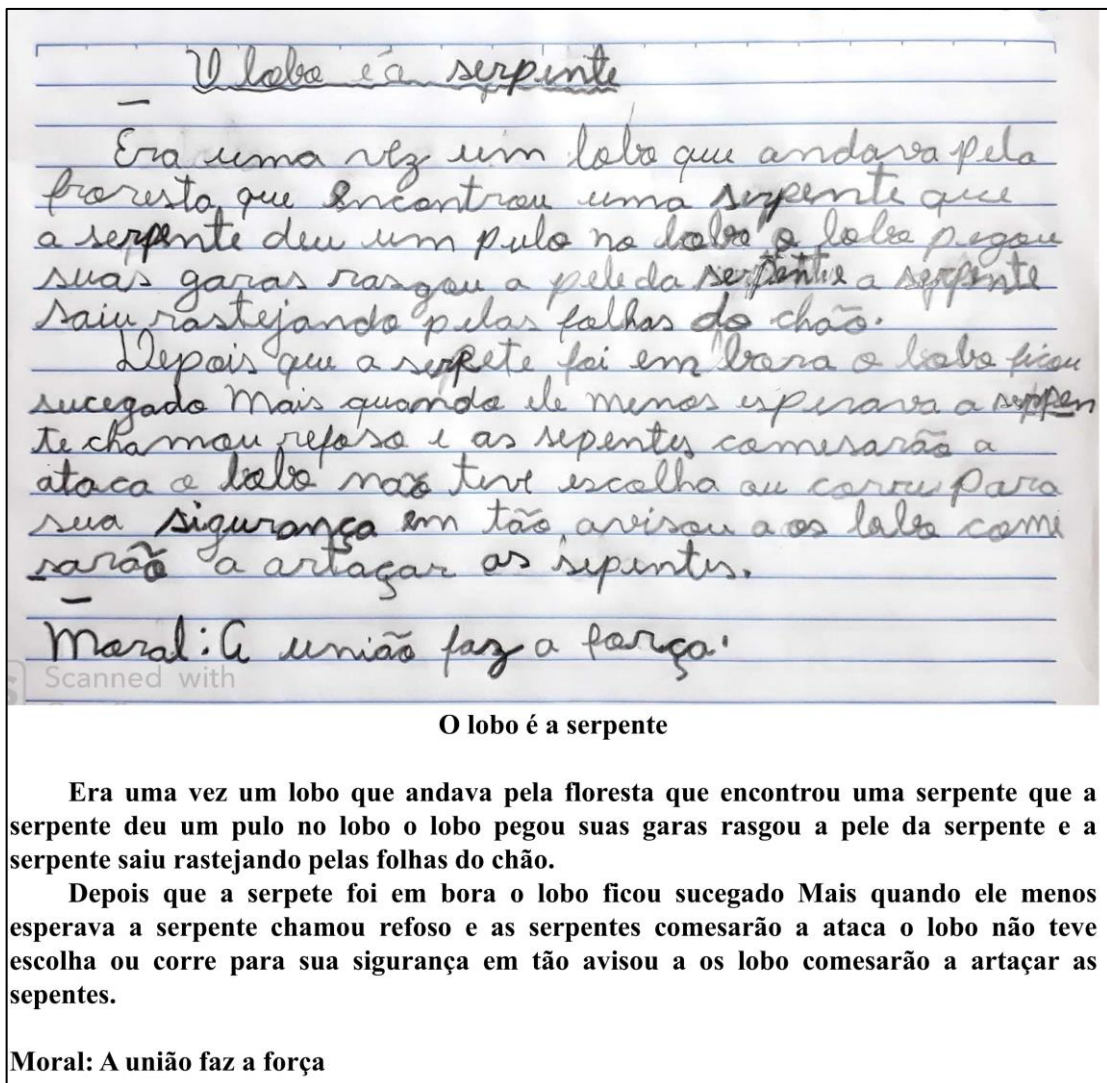 O lobo é a serpente
Era uma vez um lobo que andava pela
froresta que encontrou uma serpente que
a serpente deu um pulo no lobo o lobo pegou
suas garas rasgou a pele da serpente a serpente
saiu rastejando pelas folhas do chão.
Depois que a serpete foi em bora o lobo ficou
sucegado Mais quando ele menos esperava a serpen
te chamou refoso e as sepentes comesarão a
ataca o lobo não teve escolha ou corre para
sua sigurança em tão avisou a os lobo come
sarão a artaçar as sepentes.
Moral: A união faz a força.
Scanned with
O lobo é a serpente
Era uma vez um lobo que andava pela floresta que encontrou uma serpente que a
serpente deu um pulo no lobo o lobo pegou suas garas rasgou a pele da serpente e a
serpente saiu rastejando pelas folhas do chão.
Depois que a serpete foi em bora o lobo ficou sucegado Mais quando ele menos
esperava a serpente chamou refoso e as serpentes comesarão a ataca o lobo não teve
escolha ou corre para sua sigurança em tão avisou a os lobo comesarão a artaçar as
sepentes.
Moral: A união faz a força